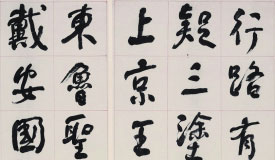 行路有
疑三塗
上京王
東魯聖
戴安國